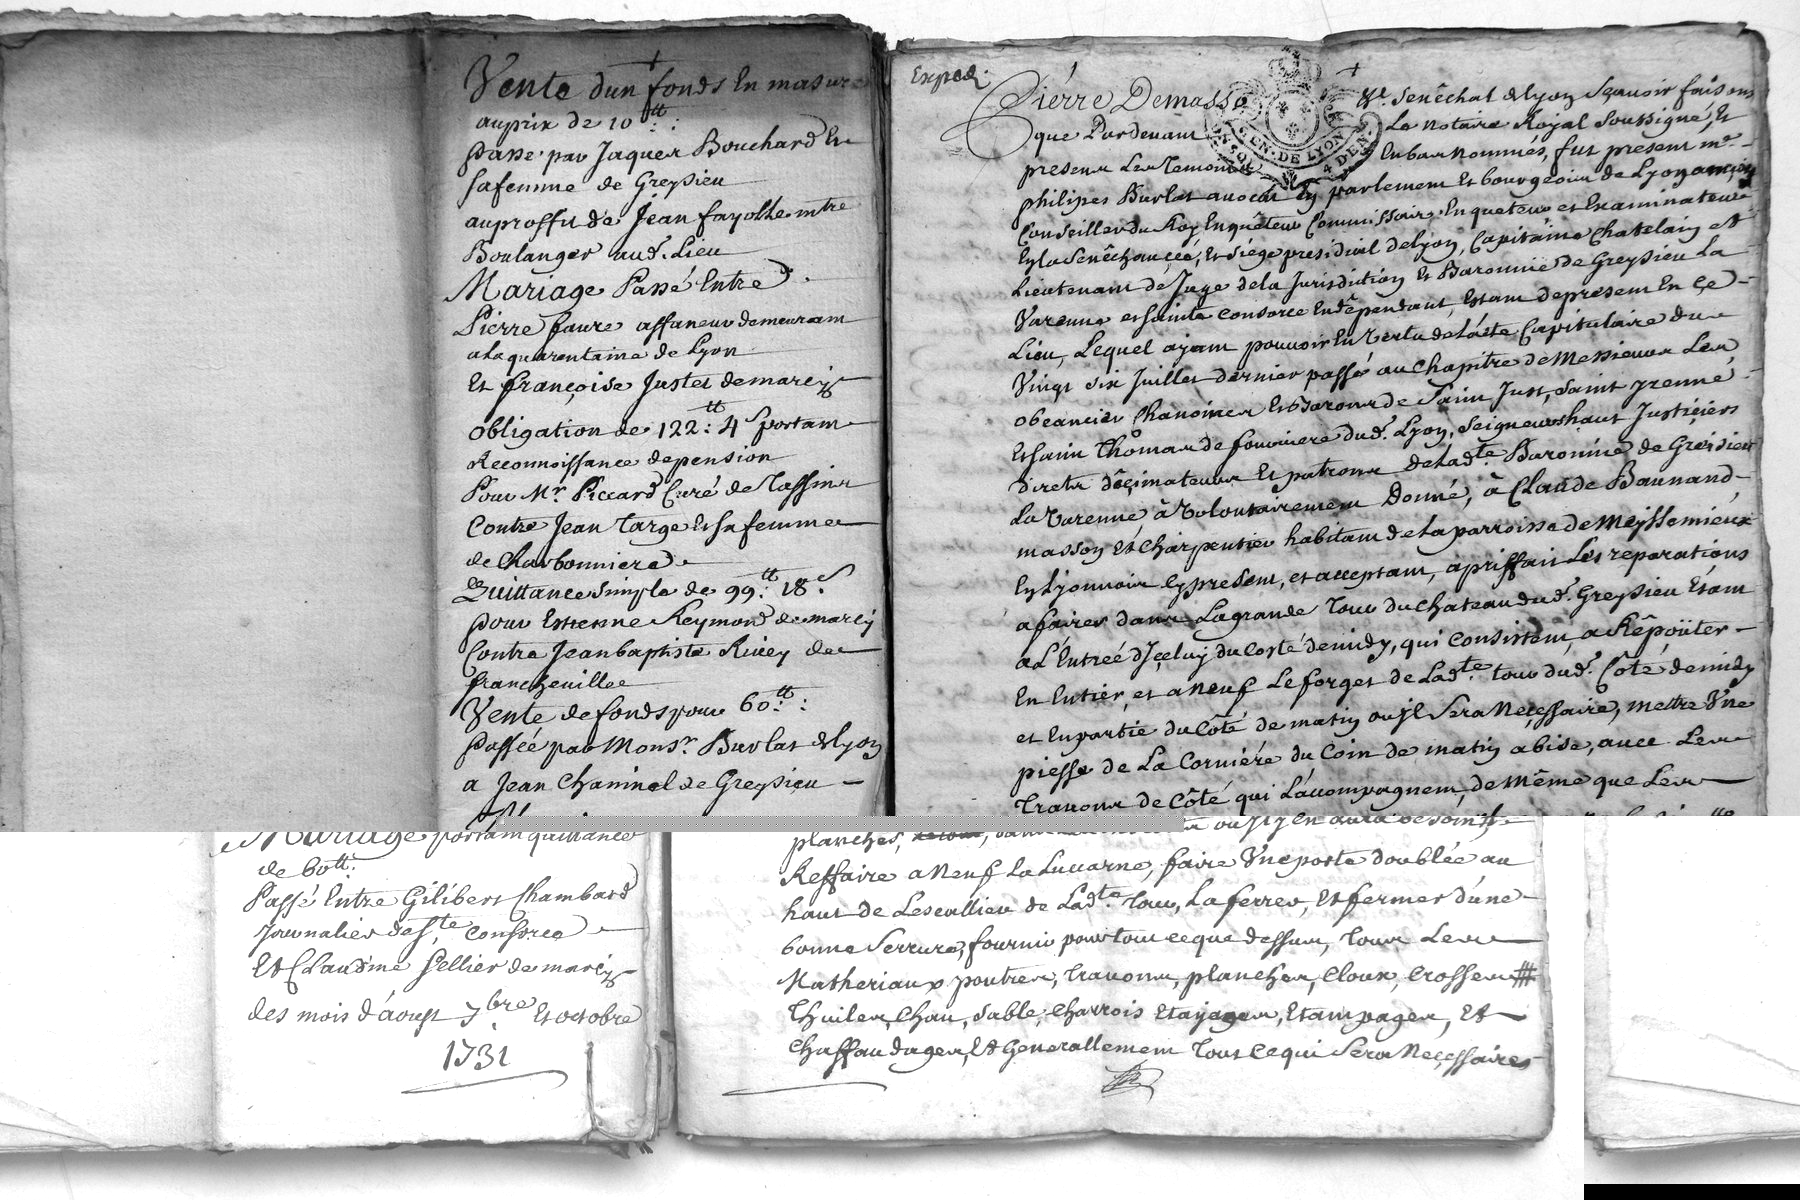 Vente dun fonds En masure
auprix de 10 tt :
Passé par Jaques Bouchard Et
sa femme de Greysieu
au proffit de Jean fayolle mtre
Boulanger aud. Lieu
Mariage Passé Entre
Pierre faure affaneur demeurant
a la quarentaine de Lyon
Et françoise Justet de marcy
obligation de 122 tt : 4 s portant
Reconnoissance de pension
Pour Mr. Piccard Curé de Tassins
Contre Jean Targe Et sa femme
de Charbonniere
Quittance simple de 99 tt : 18 s
pour Estienne Reymond de marcy
Contre Jean baptiste Rivey de
francheville
Vente de fonds pour 60 tt :
Passée par Monsr. Burlat de Lyon
a Jean Chaninel de Greysieu
Mariage portant quittance
de 60 tt :
Passé Entre Gilibert Chambard
Journalier de Ste. Consorce
Et Claudine Sellier de marcy
des mois d'áoust 7bre. Et octobre
1731
Exped.
Pierre Demasso
&c. Senêchal de Lyon Sçavoir faisons
que Pardevant Le Notaire Royal Soussigné, Et
presens Les Temoins En bas Nommés, fut present me.
philipes Burlat avocat En parlement Et bourgeois de Lyon ancien
Conseiller du Roy Enquêteur Commissaire Enqueteur et Examinateur
En la Senêchaucée, Et Siège presidial de Lyon, Capitaine Chatelain et
Lieutenant de Juge de la Jurisdiction Et Baronnie de Greysieu La
Varenne et sainte Consorce En dêpendant, Estant de present En Ce
Lieu, Lequel ayant pouvoir En Vertu de L'acte Capitulaire du
Vingt six Juillet dernier passé au Chapitre de Messieurs Les
obeancier Chanoines Et Barons de Saint Just, Saint yrenné
Et saint Thomas de fourviere dud. Lyon, Seigneurs haut Justiciers
directs dêcimateurs Et patrons de Ladte. Baronnie de Greisieu
La Varenne, à Volontairement Donné, à Claude Baunand
masson Et Charpentier habitant de La parroisse de Meyssemieux
En Lyonnois Cy present, et acceptant, a priffait Les reparations
a faires dans La grande Tour du Chateau dud. Greysieu Etant
a L'Entreé d'Jceluy du Costé de midy, qui Consistent, a Rêpoüter
En Entier, et a Neuf Le forget de Ladte. Tour dud. Côté de midy
et En partie du Côté de matin ou jl Sera Neçessaire, mettre Vne
piesse de La Corniére du Coin de matin a bise, avec Les
Travons de Côté qui L'accompagnent, de Même que Les
planches, ou jl y En aura besoint
Reffaire a Neuf La Lucarne, faire Vne porte doublée au
haut de Lescallier de Ladte. Tour, La ferrer, Et fermer d'une
bonne Serrure, fournir pour tout ce que dessus, Tous Les
Matheriaux poutres, Travons, planches, Cloux, Crosses
Thuiles, Chau, Sable, Charrois Etayages, Etampages, Et
Chaffaudages, Et Generallement Tout Ce qui Sera Neçessaires